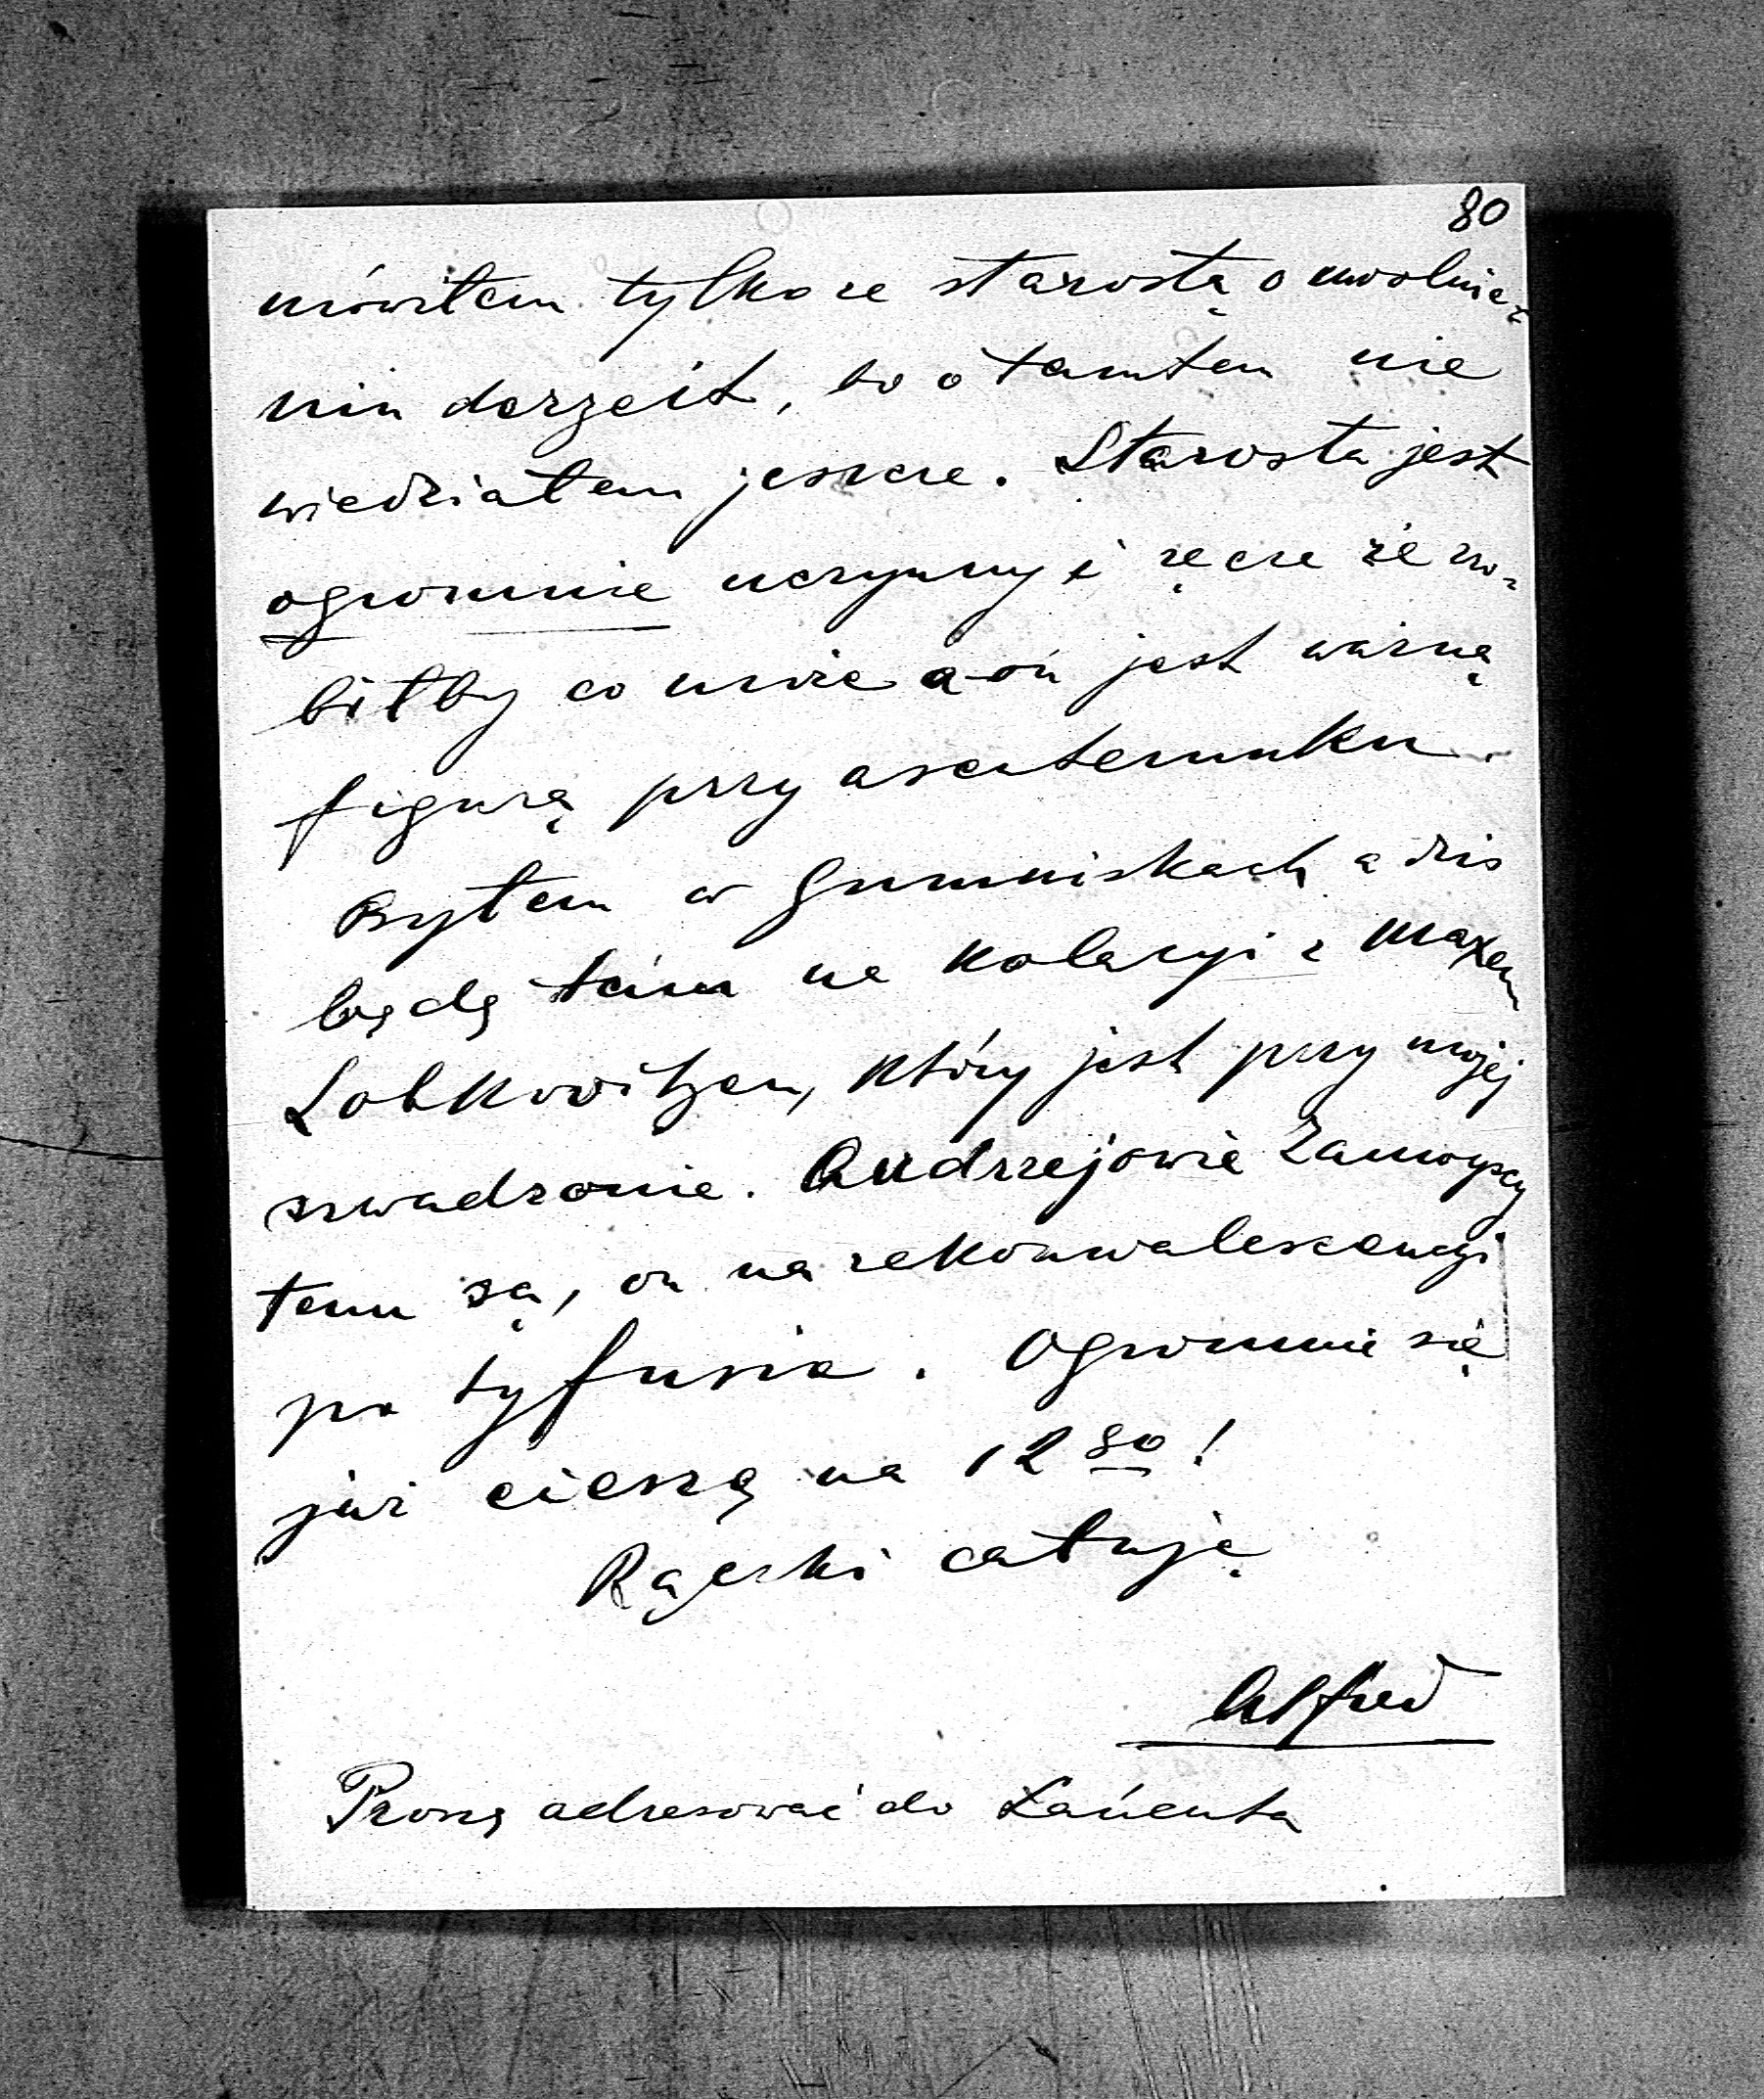 80
mówiłem tylko ze starostą o uwolnie-
niu dorzeck, bo o tamtem nie
wiedziałem jeszcze. Starosta jest
ogromnie uczynny i ręczę że zro-
biłby co może a on jest ważną
figurą przy asenterunku.
Byłem w Gumniskach a dziś
będę tam na kolacyi z Maxem
Lobkowitzem, który jest przy mojej
szwadronie. Andrzejowie Zamoyscy
tam są, on na rekonwalescencyi
po tyfusie. Ogromnie się
już cieszę na 12go!
Rączki całuję
Alfred
Proszę adresować do Łańcuta